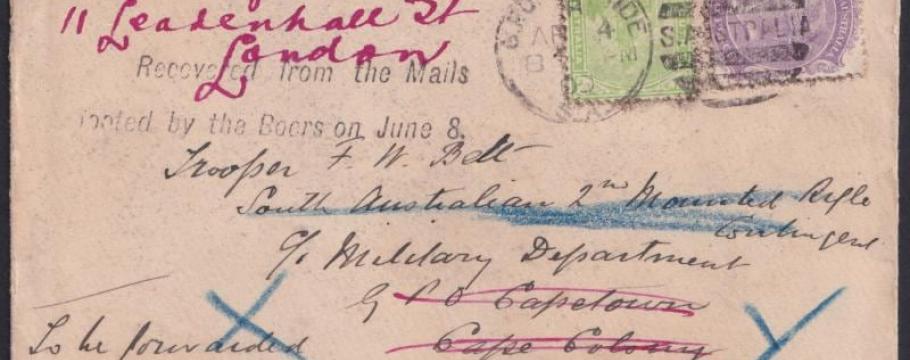 11 Leadenhall St
London
Recovered from the Mails
looted by the Boers on June 8.
Trooper F. W. Belt
South Australian 2nd Mounted Rifle
Contingent
c/o Military Department
G P O Capetown
Cape Colony
To be forwarded